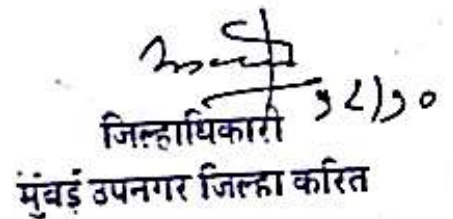 जिल्हाधिकारी
मुंबई उपनगर जिल्हा करित